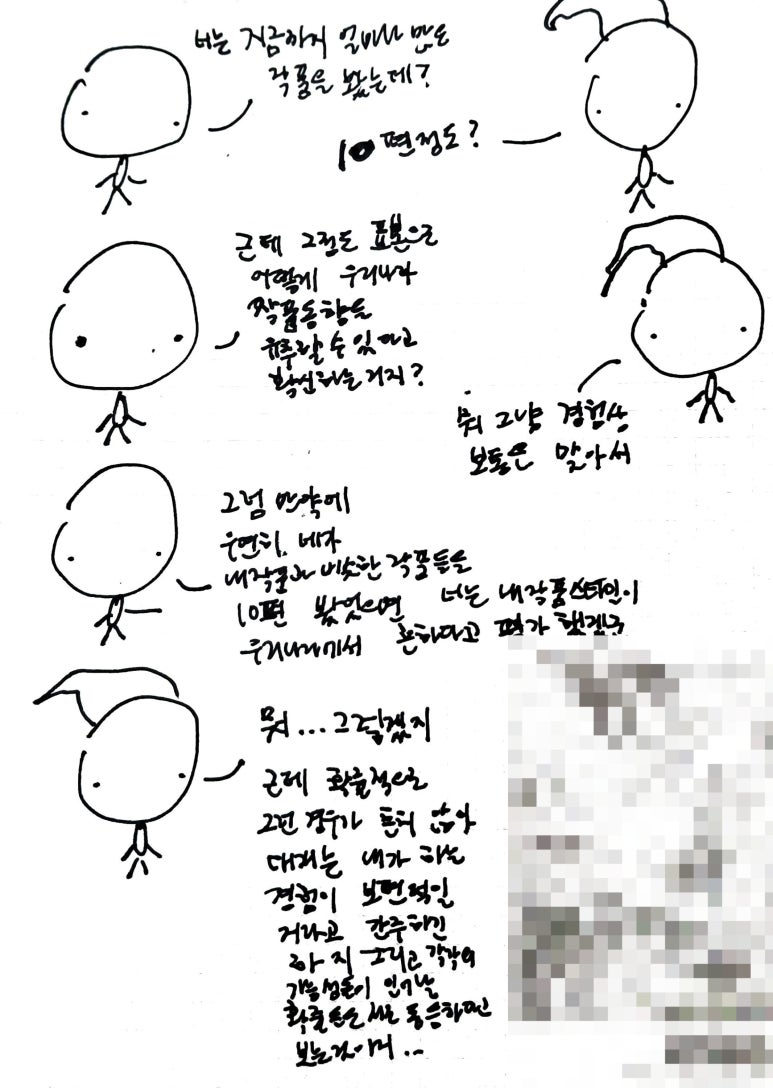 너는 지금까지 얼마나 많은
작품을 봤는데?
10편정도?
근데 그정도 표본으로
어떻게 우리나라
작품동향을
유추할 수 있다고
확신하는거지?
뭐 그냥 경험상
보통은 맞아서
그럼 만약에
우연히 네가
내작품과 비슷한 작품들을
10편 봤었으면 너는 내작품스타일이
우리나라에서 흔하다고 평가 했겠군
뭐...그렇겠지
근데 확률적으로
그런 경우가 흔치 않아
대개는 내가 하는
경험이 보편적일
거라고 간주하긴
하지 그리고 각각의
가능성들이 일어날
확률들은 서로 동등하다고
보는것이며...